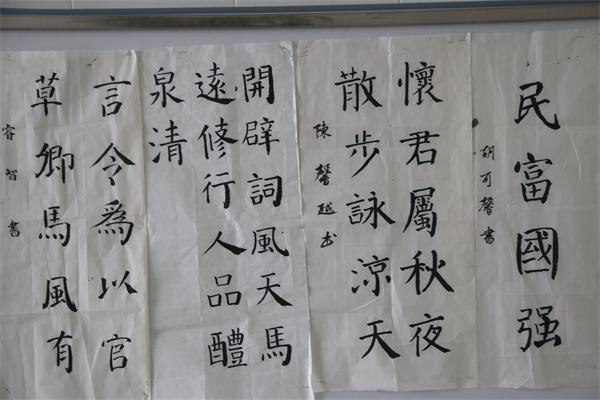 民富國强
胡可馨書
懷君屬秋夜
散步詠涼天
陳馨越书
開辟詞風天馬
遠修行人品醴
泉清
言令為以官
草卿馬風有
睿智書